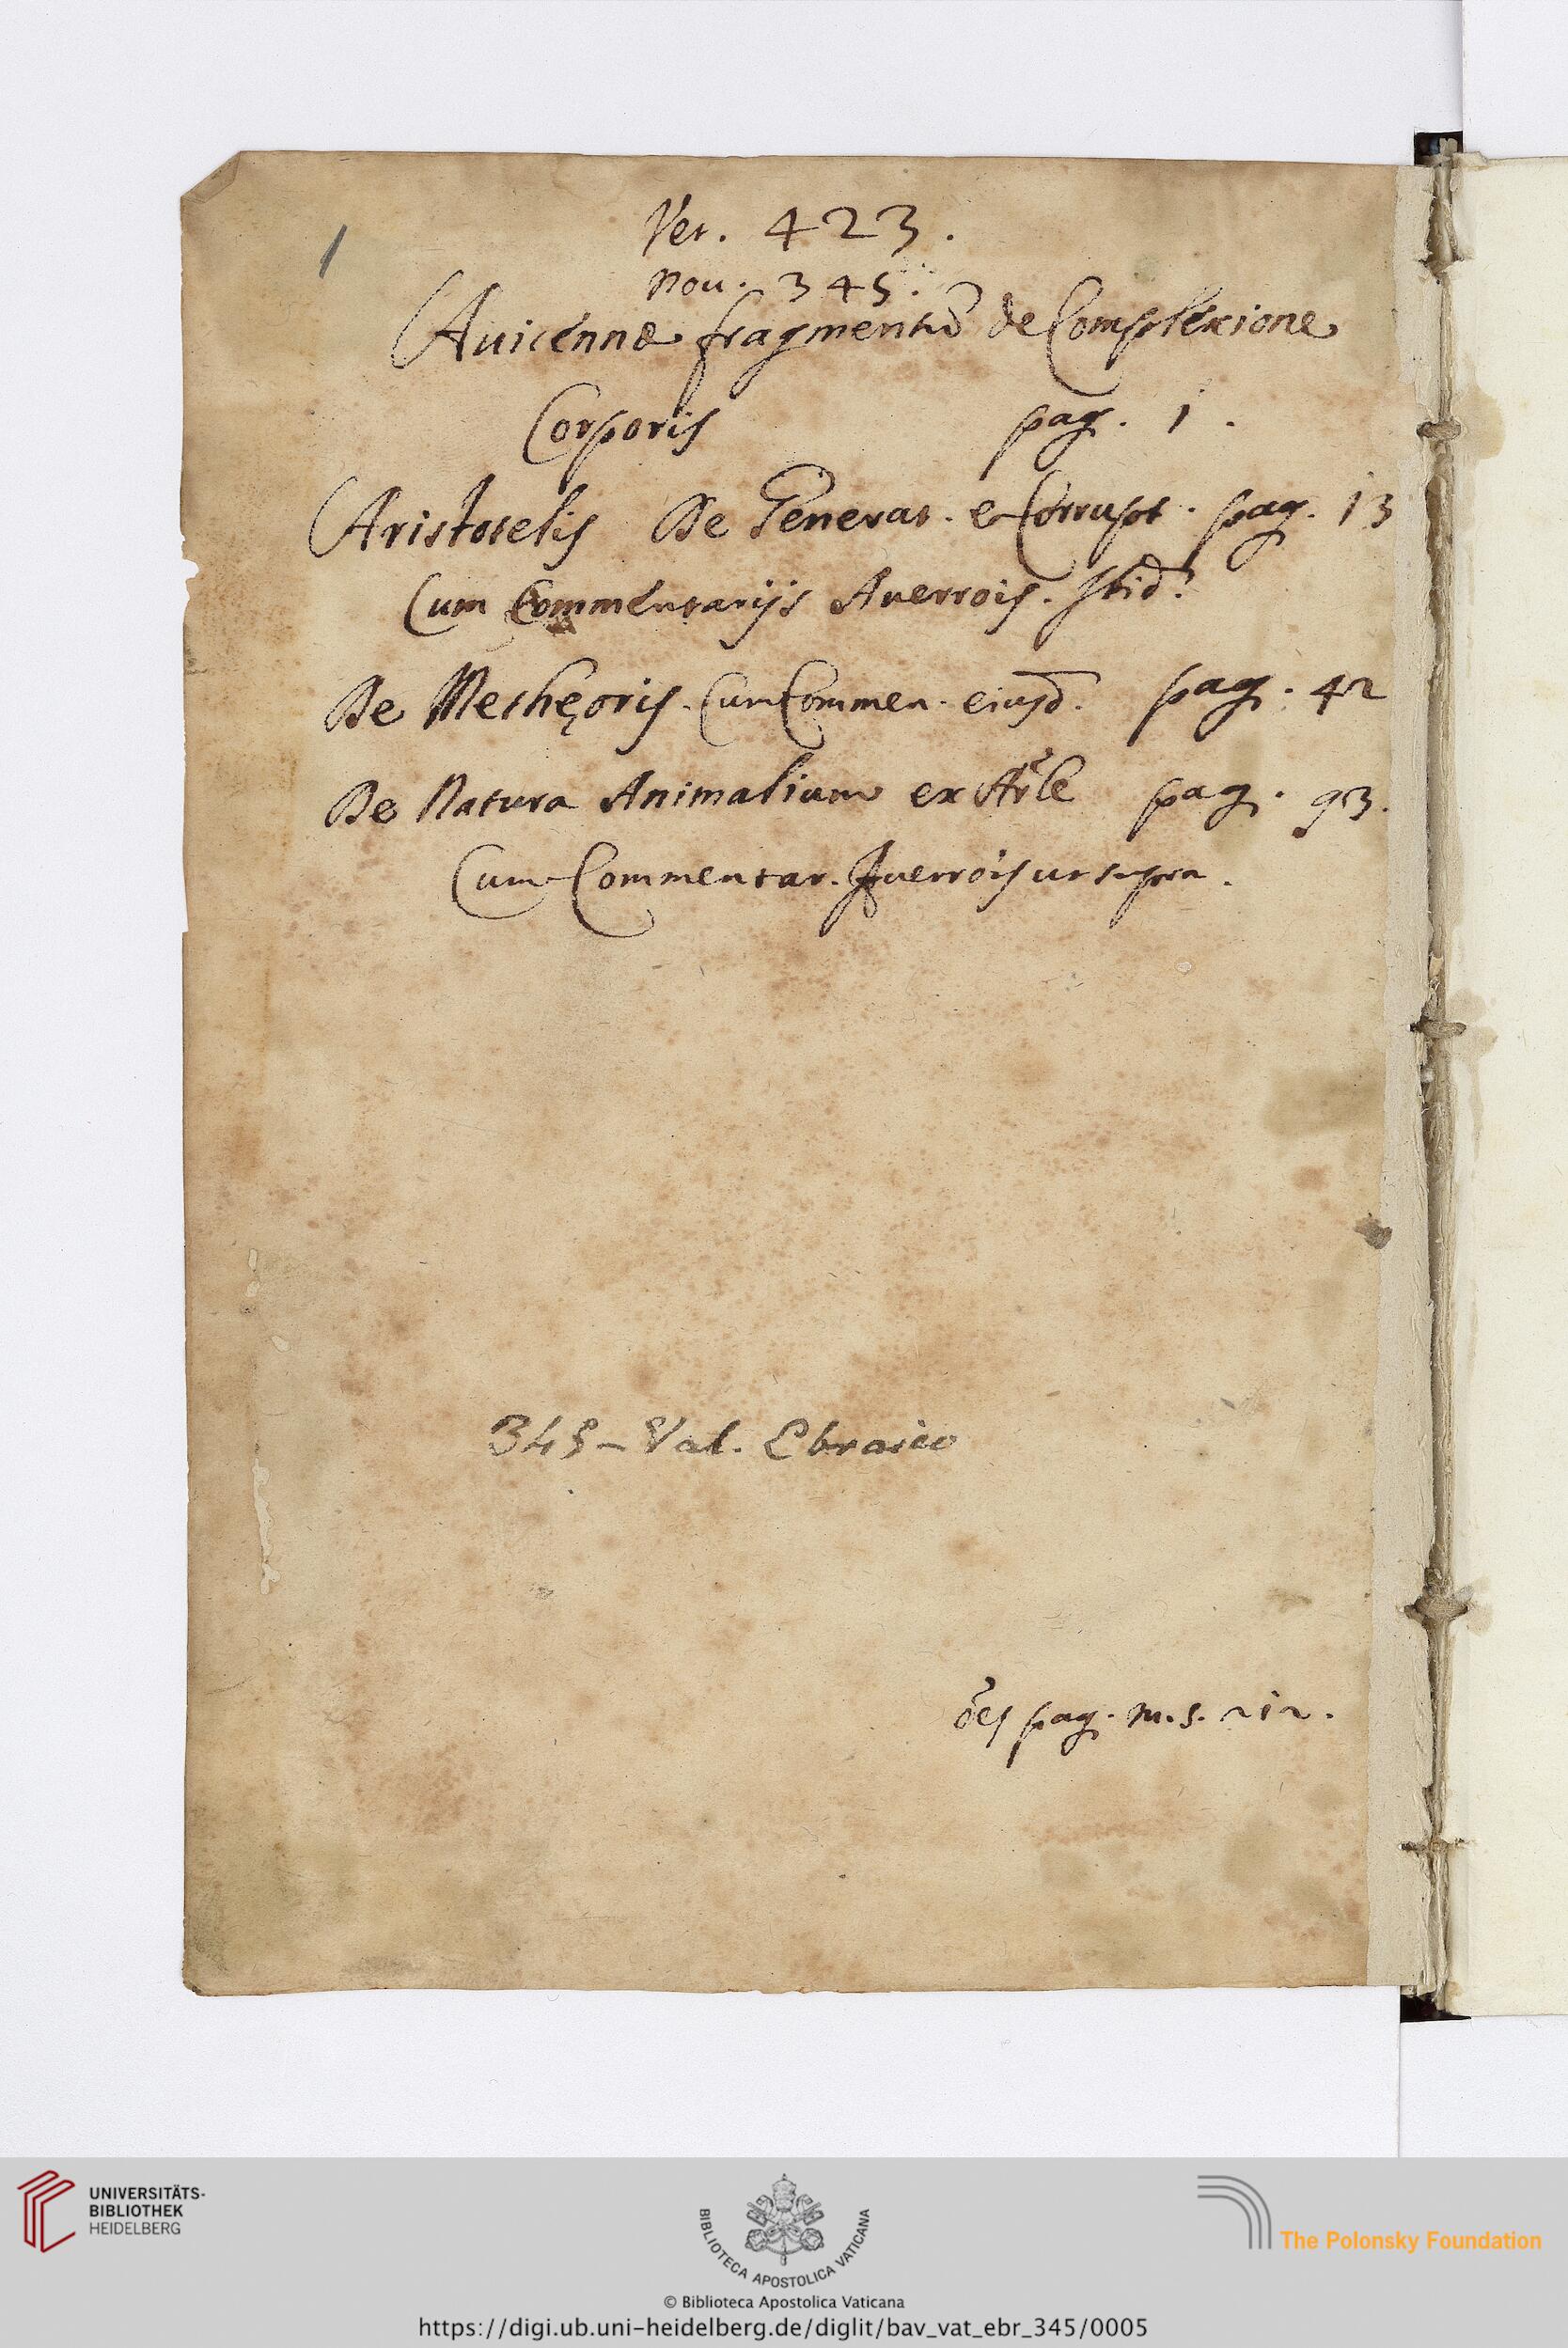 1
Vet. 423.
Nou. 345.
Auicennæ fragmentũ de Complexione
Corporis pag. 1.
Aristotelis De Generat. et Corrupt. pag. 13
Cum Commentarijs Auerrois.
De Methęoris. Cum Commen. eiusd̃. pag. 42
De Natura Animalium ex Ar̃le pag. 93.
Cum Commentar. Auerrois ut supra.
345 - Vat. Ebraico
ões pag. m.s. 212.
UNIVERSITÄTS-
BIBLIOTHEK
HEIDELBERG
BIBLIOTECA APOSTOLICA VATICANA
The Polonsky Foundation
© Biblioteca Apostolica Vaticana
https://digi.ub.uni-heidelberg.de/diglit/bav_vat_ebr_345/0005